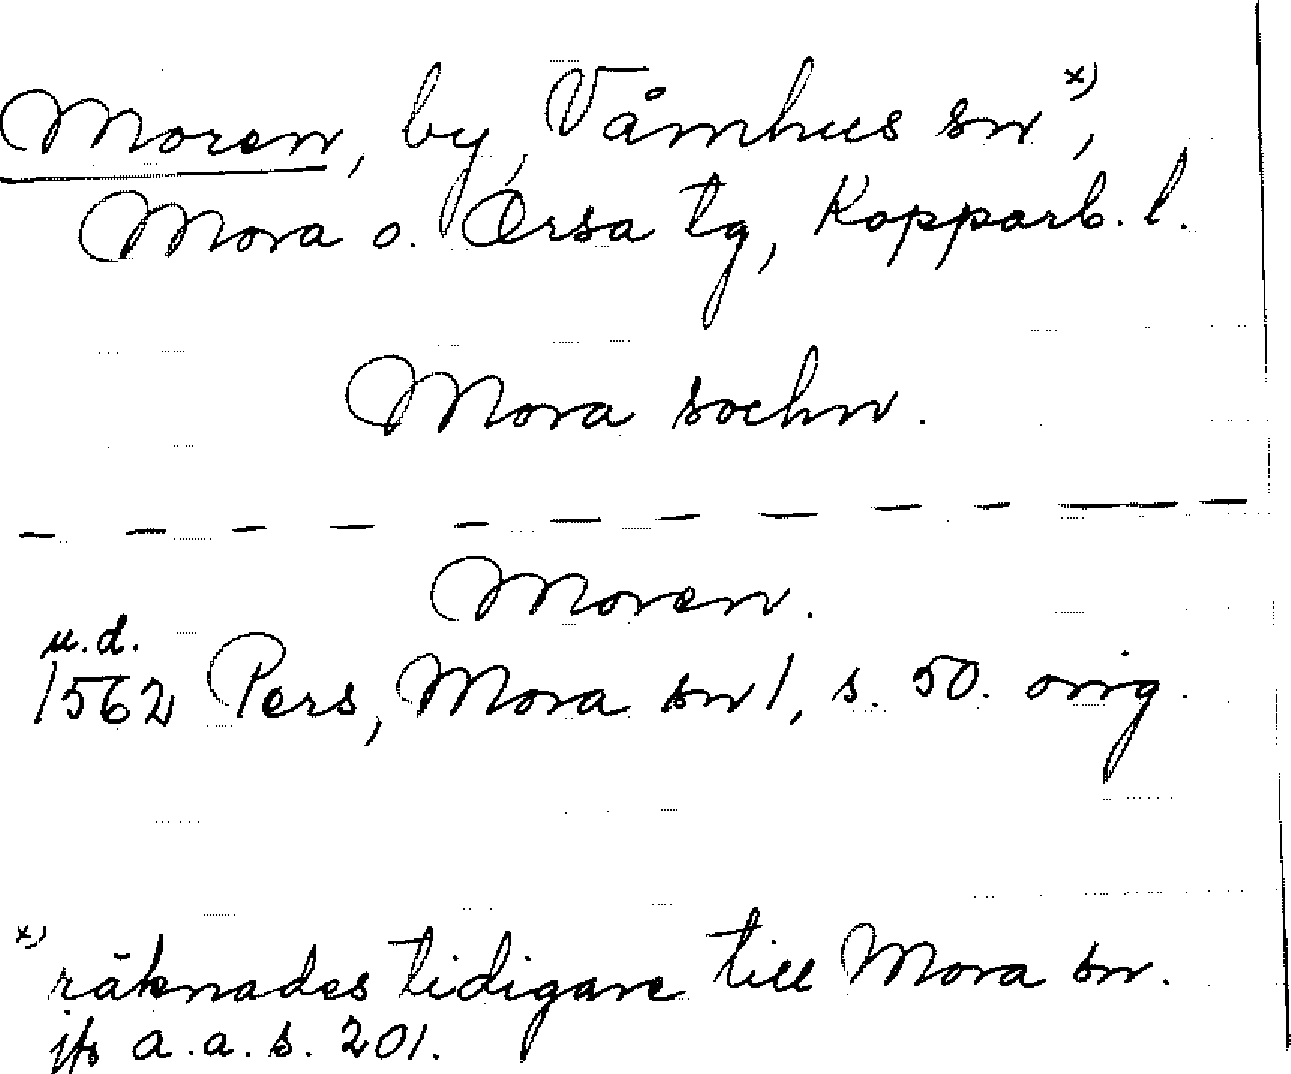 Moren, by, Våmhus sn x),
Mora o. Orsa tg, Kopparb. l.
Mora sochn.
Moren.
u.d.
1562 Pers, Mora sn 1, s. 50. orig.
x) räknades tidigare till Mora sn.
jfr a.a. s. 201.